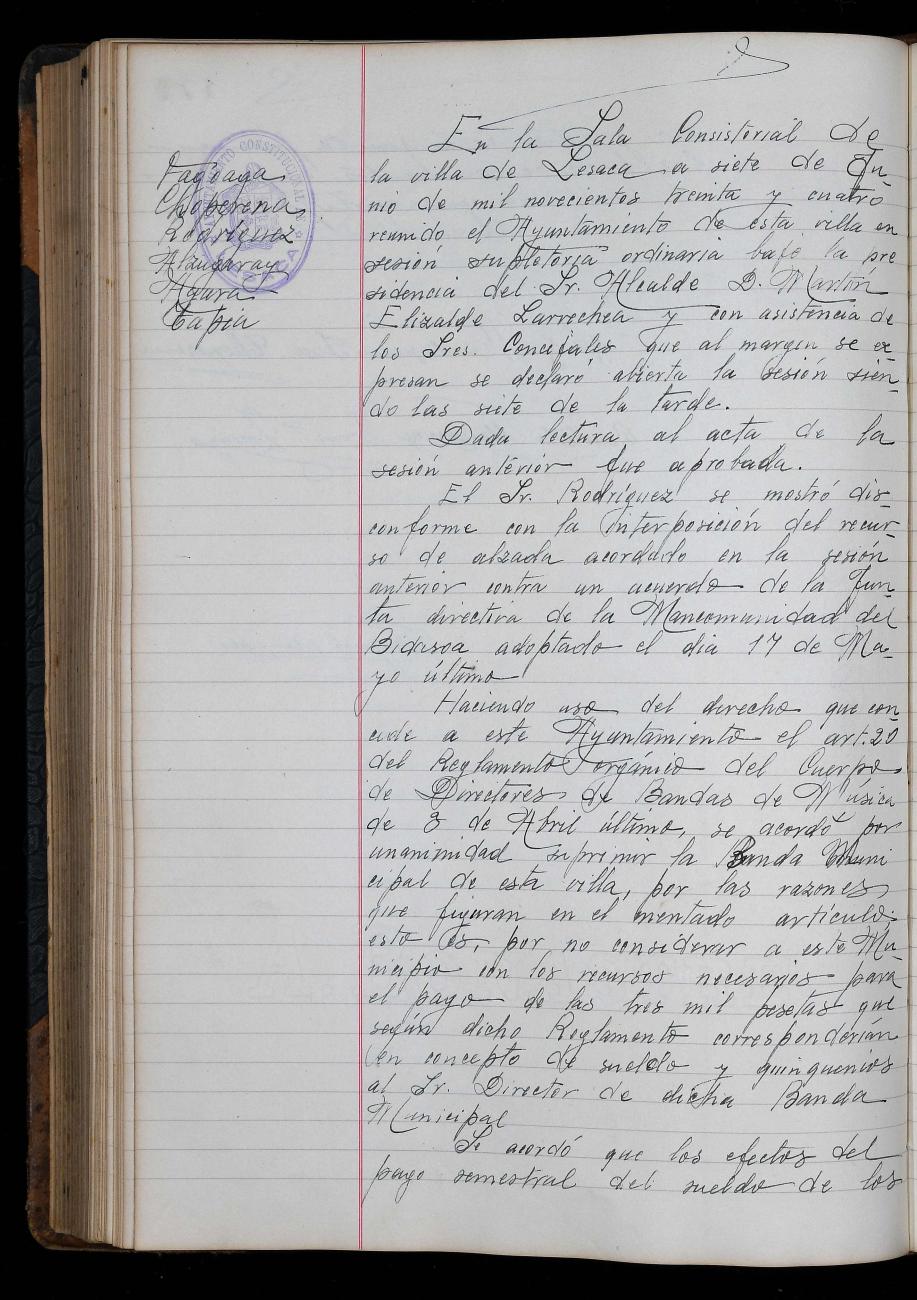 Fagoaga
Choperena
Rodríguez
Alzugaray
Agara
Tapia
AYUNTAMIENTO CONSTITUCIONAL DE
En la Sala Consistorial de
la villa de Lesaca a siete de Ju-
nio de mil novecientos treinta y cuatro
reunido el Ayuntamiento de esta villa en
sesión supletoria ordinaria bajo la pre
sidencia del Sr. Alcalde D. Martín
Elizalde Larrechea y con asistencia de
los Sres. Concejales que al margen se ex
presan se declaró abierta la sesión sien-
do las siete de la tarde.
Dada lectura al acta de la
sesión anterior fue aprobada.
El Sr. Rodríguez se mostró dis-
conforme con la interposición del recur-
so de alzada acordado en la sesión
anterior contra un acuerdo de la Jun-
ta directiva de la Mancomunidad del
Bidasoa adoptado el dia 17 de Ma-
yo último
Haciendo uso del derecho que con-
cede a este Ayuntamiento el art. 20
del Reglamento organico del Cuerpo
de Directores de Bandas de Música
de 3 de Abril último, se acordó por
unanimidad suprimir la Banda Muni
cipal de esta villa, por las razones
que figuran en el mentado artículo:
esto es, por no considerar a este Mu-
nicipio con los recursos necesarios para
el pago de las tres mil pesetas que
según dicho Reglamento corresponderían
en concepto de sueldo y quinquenios
al Sr. Director de dicha Banda
Municipal
Se acordó que los efectos del
pago semestral del sueldo de los